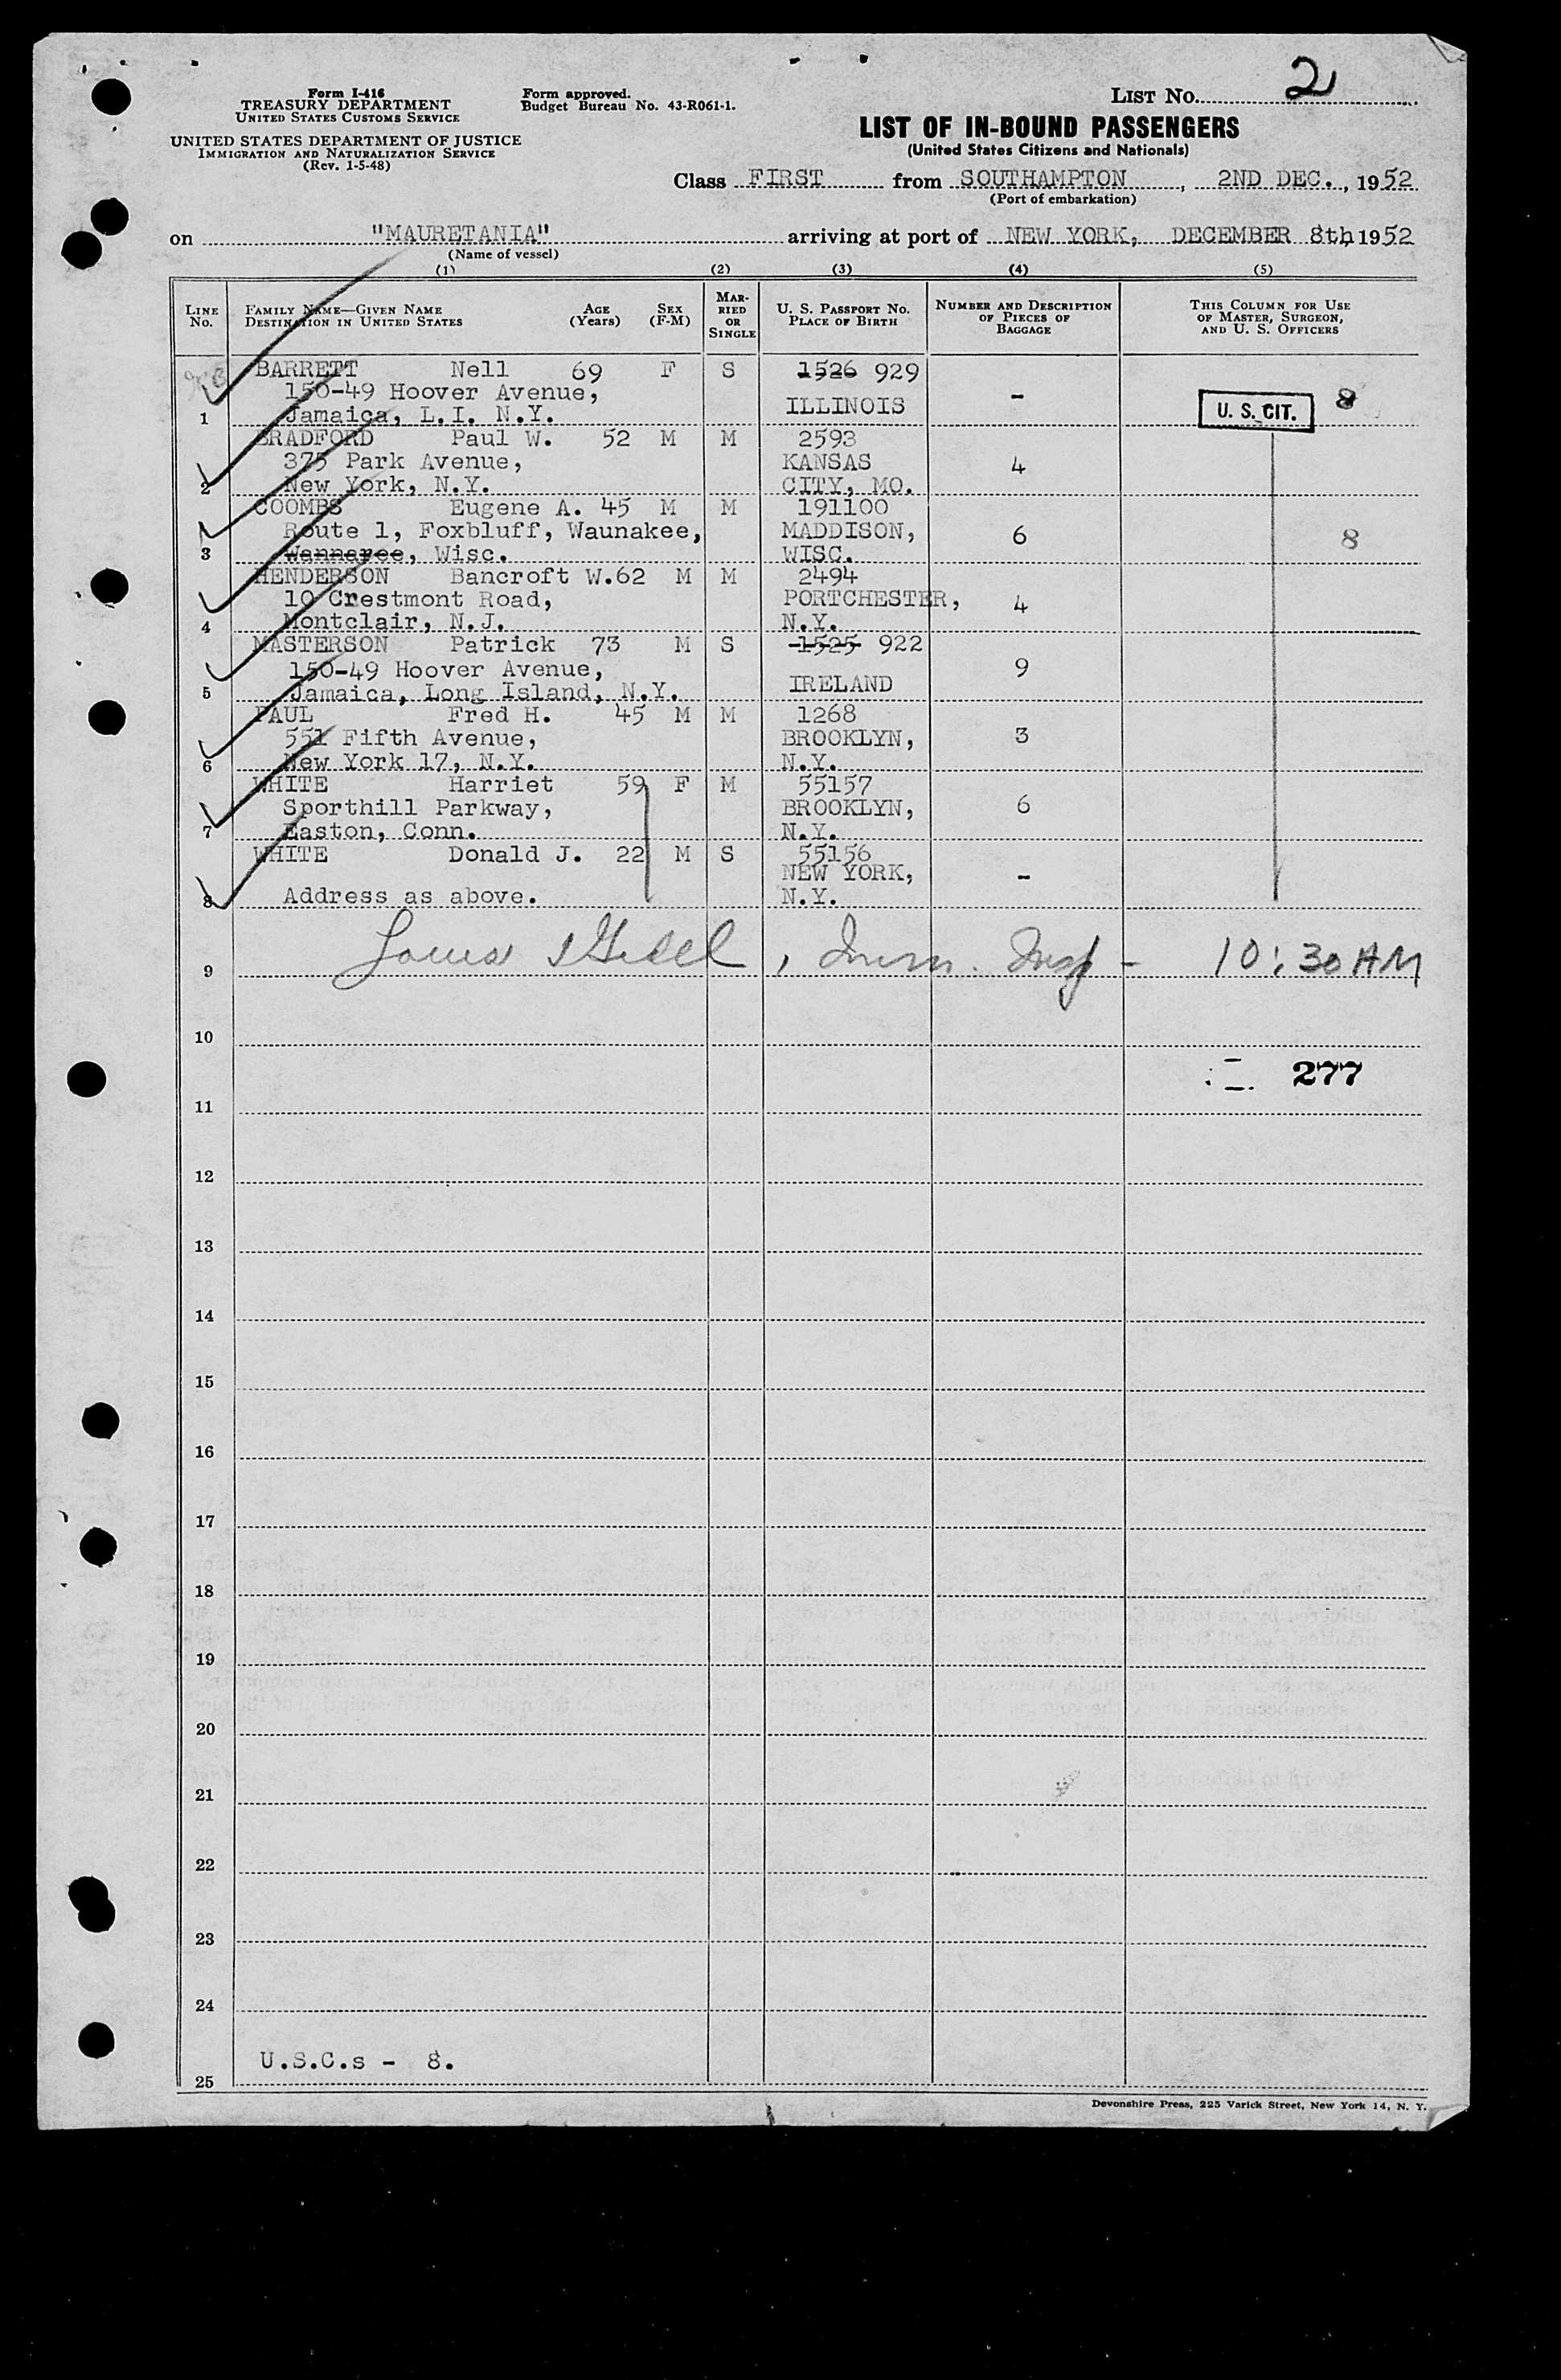 Form I-416
TREASURY DEPARTMENT
UNITED STATES CUSTOMS SERVICE
UNITED STATES DEPARTMENT OF JUSTICE
IMMIGRATION AND NATURALIZATION SERVICE
(Rev. 1-5-48)
Form approved.
Budget Bureau No. 43-R061-1.
LIST No. 2
LIST OF IN-BOUND PASSENGERS
(United States Citizens and Nationals)
Class FIRST from SOUTHAMPTON, 2ND DEC., 1952
(Port of embarkation)
on "MAURETANIA" arriving at port of NEW YORK, DECEMBER 8th, 1952
(Name of vessel)
(1) (2) (3) (4) (5)
LINE No.
FAMILY NAME—GIVEN NAME
DESTINATION IN UNITED STATES
AGE (Years)
SEX (F-M)
MARRIED OR SINGLE
U. S. PASSPORT No.
PLACE OF BIRTH
NUMBER AND DESCRIPTION OF PIECES OF BAGGAGE
THIS COLUMN FOR USE OF MASTER, SURGEON, AND U. S. OFFICERS
BARRETT Nell 69 F S 1526 929
150-49 Hoover Avenue, ILLINOIS - U. S. CIT. 8
1 Jamaica, L.I. N.Y.
BRADFORD Paul W. 52 M M 2593
375 Park Avenue, KANSAS 4
2 New York, N.Y. CITY, MO.
COOMBS Eugene A. 45 M M 191100
Route 1, Foxbluff, Waunakee, MADDISON, 6 8
3 Wannaree, Wisc. WISC.
HENDERSON Bancroft W. 62 M M 2494
10 Crestmont Road, PORTCHESTER, 4
4 Montclair, N.J. N.Y.
MASTERSON Patrick 73 M S 1525 922
150-49 Hoover Avenue, IRELAND 9
5 Jamaica, Long Island, N.Y.
PAUL Fred H. 45 M M 1268
551 Fifth Avenue, BROOKLYN, 3
6 New York 17, N.Y. N.Y.
WHITE Harriet 59 F M 55157
Sporthill Parkway, BROOKLYN, 6
7 Easton, Conn. N.Y.
WHITE Donald J. 22 M S 55156
NEW YORK, -
8 Address as above. N.Y.
9 Louis , Imm. Insp - 10:30 AM
10
277
11
12
13
14
15
16
17
18
19
20
21
22
23
24
U.S.C.s - 8.
25
Devonshire Press, 225 Varick Street, New York 14, N. Y.